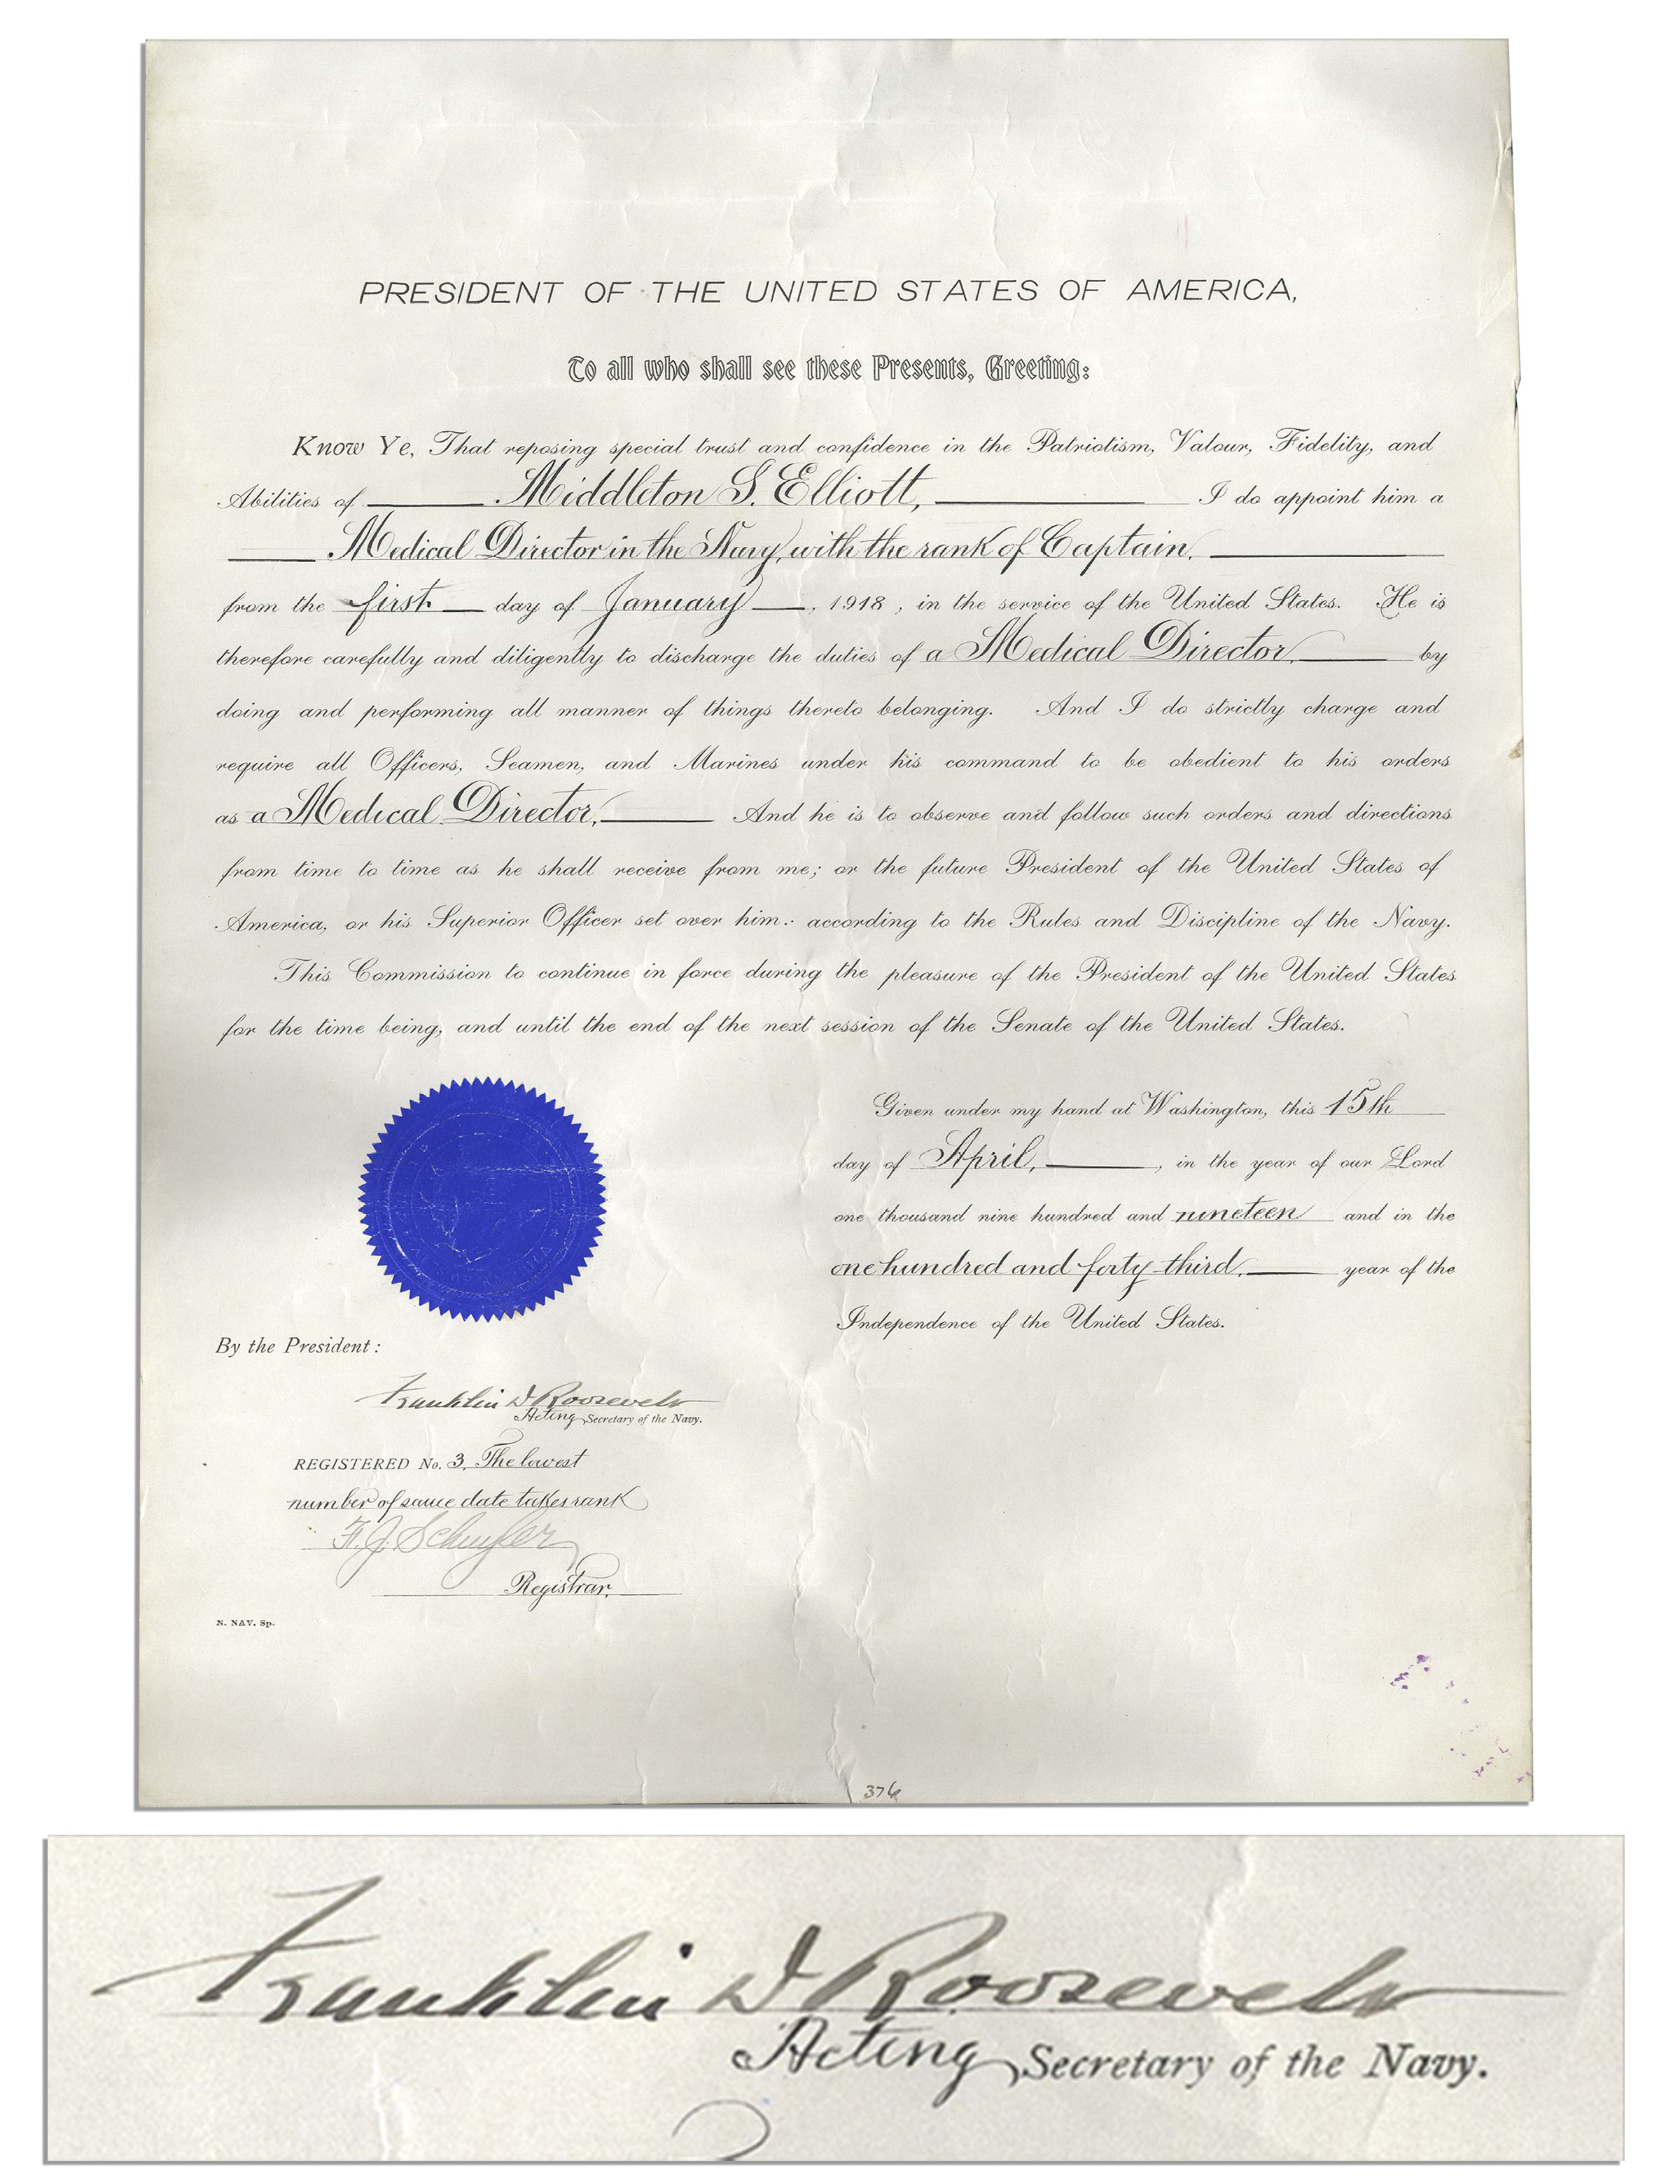 PRESIDENT OF THE UNITED STATES OF AMERICA,
To all who shall see these Presents, Greeting:
Know Ye, That reposing special trust and confidence in the Patriotism, Valour, Fidelity, and
Abilities of Middleton S. Elliott, I do appoint him a
Medical Director in the Navy, with the rank of Captain,
from the first day of January, 1918, in the service of the United States. He is
therefore carefully and diligently to discharge the duties of a Medical Director, by
doing and performing all manner of things thereto belonging. And I do strictly charge and
require all Officers, Seamen, and Marines under his command to be obedient to his orders
as a Medical Director, And he is to observe and follow such orders and directions
from time to time as he shall receive from me; or the future President of the United States of
America, or his Superior Officer set over him: according to the Rules and Discipline of the Navy.
This Commission to continue in force during the pleasure of the President of the United States
for the time being, and until the end of the next session of the Senate of the United States.
Given under my hand at Washington, this 15th
day of April, , in the year of our Lord
one thousand nine hundred and nineteen and in the
one hundred and forty-third, year of the
Independence of the United States.
By the President:
Franklin D Roosevelt
Acting Secretary of the Navy.
REGISTERED No. 3. The lowest
number of same date takes rank
F. J. Schuyler
Registrar.
N. NAV. Sp.
376
Franklin D Roosevelt
Acting Secretary of the Navy.